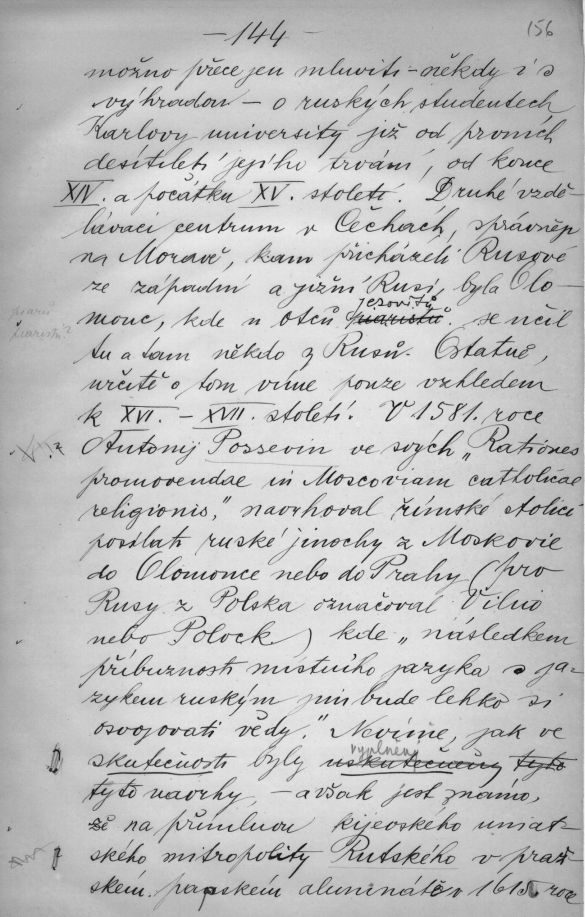 — 144 —
156
možno přece jen mluviti – někdy i s
výhradou – o ruských studentech
Karlovy university již od prvních
desítiletí jejího trvání, od konce
XIV. a počátku XV. století. Druhé vzdě-
lávací centrum v Čechách, správněji
na Moravě, kam přicházeli Rusové
ze západní a jižní Rusi, byla Olo-
jezovitů
mouc, kde u otců piaristů se učil
piarů
piaristů?
tu a tam někdo z Rusů. Ostatně,
určitě o tom víme pouze vzhledem
k XVI. – XVII. století. V 1581. roce
Antonij Possevin ve svých „Rationes
promovendae in Moscoviam catholicae
religionis," navrhoval římské stolici
posílati ruské jinochy z Moskovie
do Olomouce nebo do Prahy (pro
Rusy z Polska označoval Vilno
nebo Polock) kde „následkem
příbuznosti místního jazyka s ja-
zykem ruským jim bude lehko si
osvojovati vědy." Nevíme, jak ve
vyplněny
skutečnosti byly uskutečněny tyto
tyto návrhy, – avšak jest známo,
že na přímluvu kijevského uniat-
ského mitropolity Rutského v praž-
ském papskem alumnátě v 1615 roce